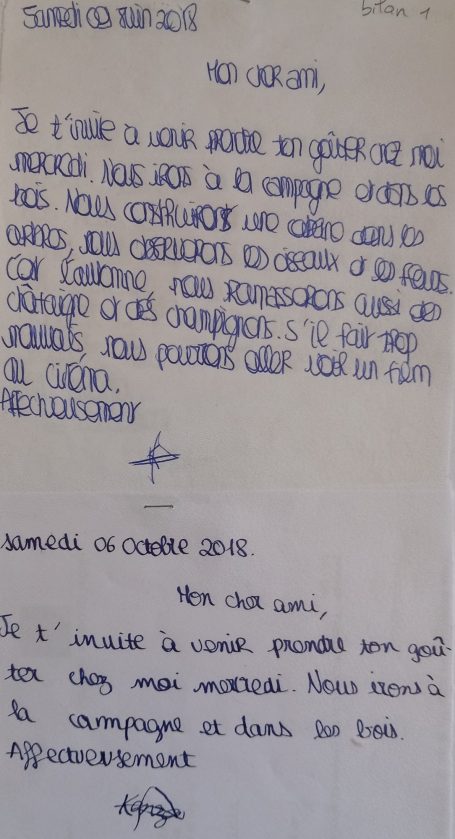 Samedi 09 Juin 2018
bilan 1
Mon cher ami,
Je t'invite à venir prendre ton goûter chez moi
mercredi. Nous irons à la campagne et dans les
bois. Nous construirons une cabane dans les
arbres, nous observerons les oiseaux et les fleurs.
Car l'automne, nous ramasserons aussi des
châtaigne et des champignons. S'il fait trop
mauvais nous pourrons aller voir un film
au cinéma.
Affectueusement
samedi 06 Octobre 2018.
Mon cher ami,
Je t'invite à venir prendre ton goû-
ter chez moi mercredi. Nous irons à
la campagne et dans les bois.
Affectueusement